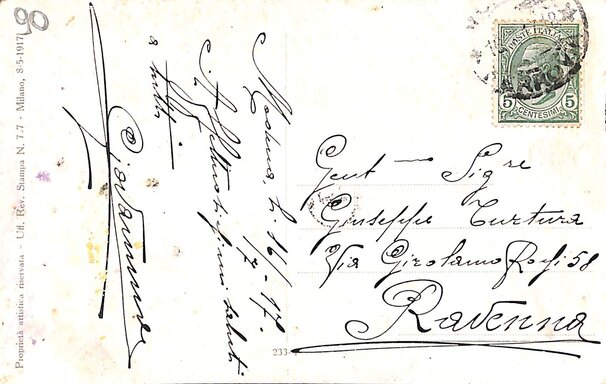 90
Proprietà artistica riservata - Uff. Rev. Stampa N. 77 - Milano, 8-5-1917
Modena, li 16/7-17.
Affettuosissimi saluti
a tutti
Giovannino
POSTE ITALIANE
5 CENTESIMI 5
Gent Sigre
Giuseppe Turtura
Via Girolamo Rossi 58
Ravenna
233